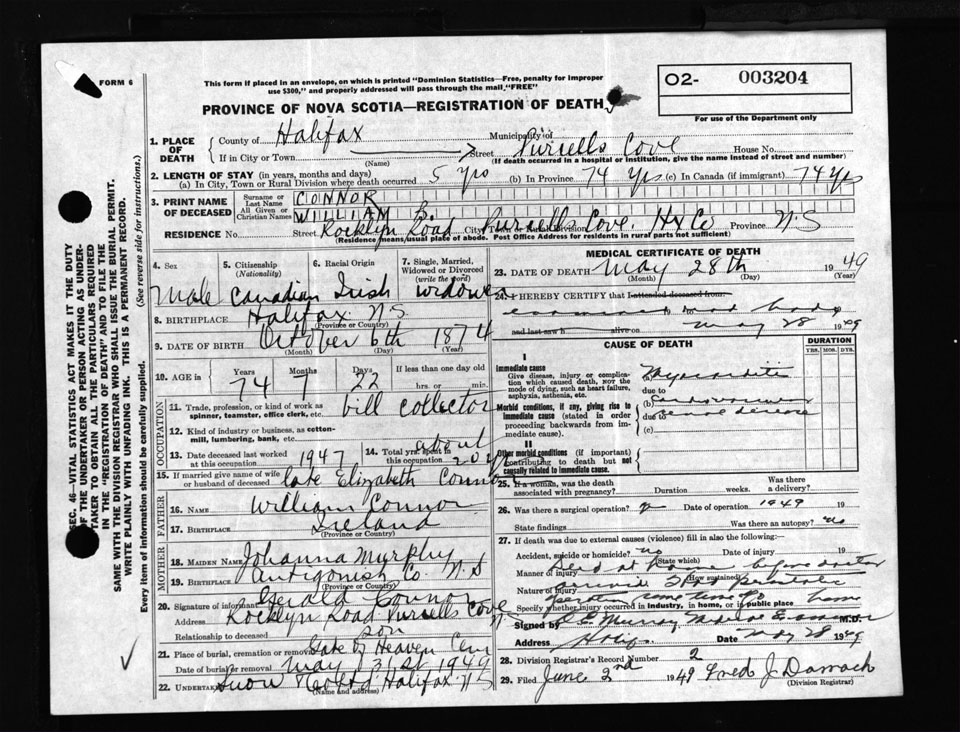 FORM 6
This form if placed in an envelope, on which is printed "Dominion Statistics—Free, penalty for improper
use $300," and properly addressed will pass through the mail "FREE"
O2- 003204
For use of the Department only
PROVINCE OF NOVA SCOTIA—REGISTRATION OF DEATH
1. PLACE OF DEATH
County of Halifax Municipality of
If in City or Town (Name) Street Purcells Cove House No.
(If death occurred in a hospital or institution, give the name instead of street and number)
2. LENGTH OF STAY (in years, months and days)
(a) In City, Town or Rural Division where death occurred 5 yrs (b) In Province 74 yrs (c) In Canada (if immigrant) 74 yrs
3. PRINT NAME OF DECEASED
Surname or Last Name CONNOR
All Given or Christian Names WILLIAM
RESIDENCE No. Street Rocklyn Road City, Town or Rural Division Purcells Cove. Hx Co Province N S
(Residence means usual place of abode. Post Office Address for residents in rural parts not sufficient)
4. Sex
Male
5. Citizenship (Nationality)
Canadian
6. Racial Origin
Irish
7. Single, Married, Widowed or Divorced (write the word)
widower
8. BIRTHPLACE Halifax N.S.
(Province or Country)
9. DATE OF BIRTH October 6th 1874
(Month) (Day) (Year)
10. AGE in Years 74 Months 7 Days 22 If less than one day old hrs. or min.
OCCUPATION
11. Trade, profession, or kind of work as spinner, teamster, office clerk, etc. bill collector
12. Kind of industry or business, as cotton-mill, lumbering, bank, etc.
13. Date deceased last worked at this occupation 1947
14. Total yrs. spent in this occupation about 20
15. If married give name of wife or husband of deceased late Elizabeth Connor
FATHER
16. Name William Connor
17. Birthplace Ireland
(Province or Country)
MOTHER
18. Maiden Name Johanna Murphy
19. Birthplace Antigonish Co N.S
(Province or Country)
20. Signature of informant Gerald Connor
Address Rocklyn Road Purcells Cove
Relationship to deceased son
21. Place of burial, cremation or removal Gate of Heaven Cem
Date of burial or removal May 31st 1949
22. Undertaker Snow & Co Ltd Halifax N S
(Name and address)
MEDICAL CERTIFICATE OF DEATH
23. DATE OF DEATH May 28th 1949
(Month) (Day) (Year)
24. I HEREBY CERTIFY that I attended deceased from:
examined dead body
and last saw h alive on May 28 1949
CAUSE OF DEATH
DURATION
YRS. MOS. DYS.
I
Immediate cause
Give disease, injury or complication which caused death, not the mode of dying, such as heart failure, asphyxia, asthenia, etc.
(a) Myocarditis
due to
Morbid conditions, if any, giving rise to immediate cause (stated in order proceeding backwards from immediate cause).
(b) Cardiovascular
due to renal disease
(c)
II
Other morbid conditions (if important) contributing to death but not causally related to immediate cause.
25. If a woman, was the death associated with pregnancy? Duration weeks. Was there a delivery?
26. Was there a surgical operation? Date of operation 1949 19
State findings Was there an autopsy? no
27. If death was due to external causes (violence) fill in also the following:—
Accident, suicide or homicide? no Date of injury 19
(State which)
Manner of injury Dead at home before doctor
(How sustained)
Nature of injury arrived.
Specify whether injury occurred in industry, in home, or in public place home
Signed by Murray Medical Examiner M.D.
Address Halifx. Date May 28 1949
28. Division Registrar's Record Number 2
29. Filed June 2nd 1949 Fred J. Darrach
(Division Registrar)
SEC. 46—VITAL STATISTICS ACT MAKES IT THE DUTY
OF THE UNDERTAKER OR PERSON ACTING AS UNDER-
TAKER TO OBTAIN ALL THE PARTICULARS REQUIRED
IN THE "REGISTRATION OF DEATH" AND TO FILE THE
SAME WITH THE DIVISION REGISTRAR WHO SHALL ISSUE THE BURIAL PERMIT.
WRITE PLAINLY WITH UNFADING INK. THIS IS A PERMANENT RECORD.
Every item of information should be carefully supplied. (See reverse side for instructions.)